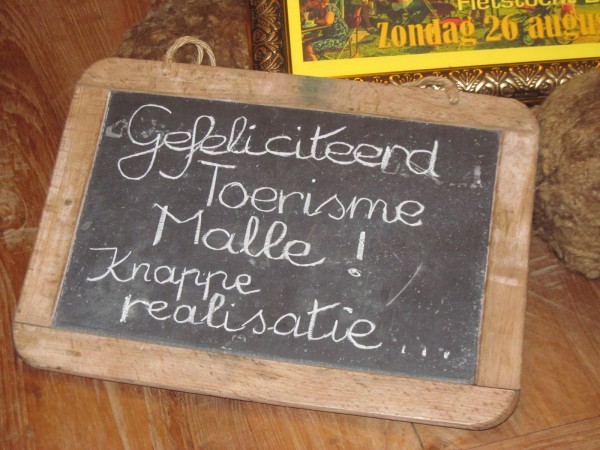 Zondag 26 augus
Gefeliciteerd
Toerisme
Malle !
Knappe
realisatie ...